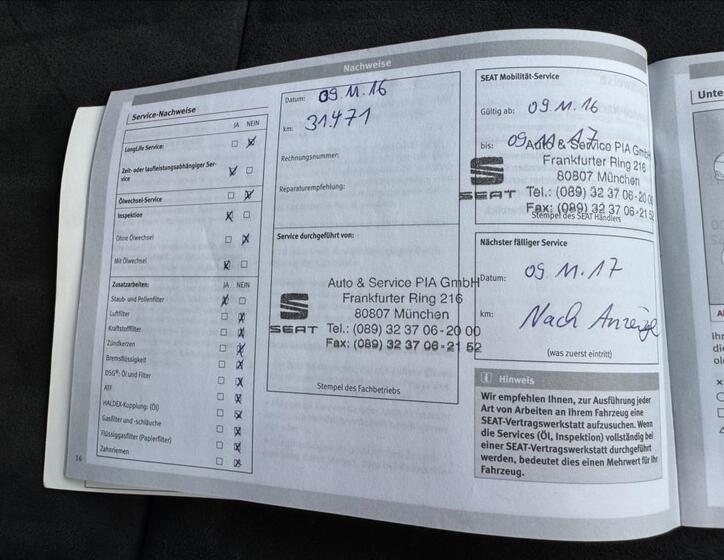 Nachweise
Service-Nachweise
JA NEIN
LongLife Service: ☐ ☒
Zeit- oder laufleistungsabhängiger Ser-
vice ☒ ☐
Ölwechsel-Service ☐ ☒
Inspektion ☒ ☐
Ohne Ölwechsel ☐ ☒
Mit Ölwechsel ☒ ☐
Zusatzarbeiten: JA NEIN
Staub- und Pollenfilter ☒ ☐
Luftfilter ☐ ☒
Kraftstofffilter ☐ ☒
Zündkerzen ☐ ☒
Bremsflüssigkeit ☐ ☒
DSG®: Öl und Filter ☐ ☒
ATF ☐ ☒
HALDEX-Kupplung: (Öl) ☐ ☒
Gasfilter und -schläuche ☐ ☒
Flüssiggasfilter (Papierfilter) ☐ ☒
Zahnriemen ☐ ☒
16
Datum: 09.11.16
km: 31.471
Rechnungsnummer:
Reparaturempfehlung:
Service durchgeführt von:
Auto & Service PIA GmbH
Frankfurter Ring 216
80807 München
SEAT Tel.: (089) 32 37 06-20 00
Fax: (089) 32 37 06-21 52
Stempel des Fachbetriebs
SEAT Mobilität-Service
Gültig ab: 09.11.16
bis: 09.11.17
Auto & Service PIA GmbH
Frankfurter Ring 216
80807 München
SEAT Tel.: (089) 32 37 06-20 00
Fax: (089) 32 37 06-21 52
Stempel des SEAT Händlers
Nächster fälliger Service
Datum: 09.11.17
km: Nach Anzeige
(was zuerst eintritt)
i Hinweis
Wir empfehlen Ihnen, zur Ausführung jeder
Art von Arbeiten an Ihrem Fahrzeug eine
SEAT-Vertragswerkstatt aufzusuchen. Wenn
die Services (Öl, Inspektion) vollständig bei
einer SEAT-Vertragswerkstatt durchgeführt
werden, bedeutet dies einen Mehrwert für Ihr
Fahrzeug.
Unte